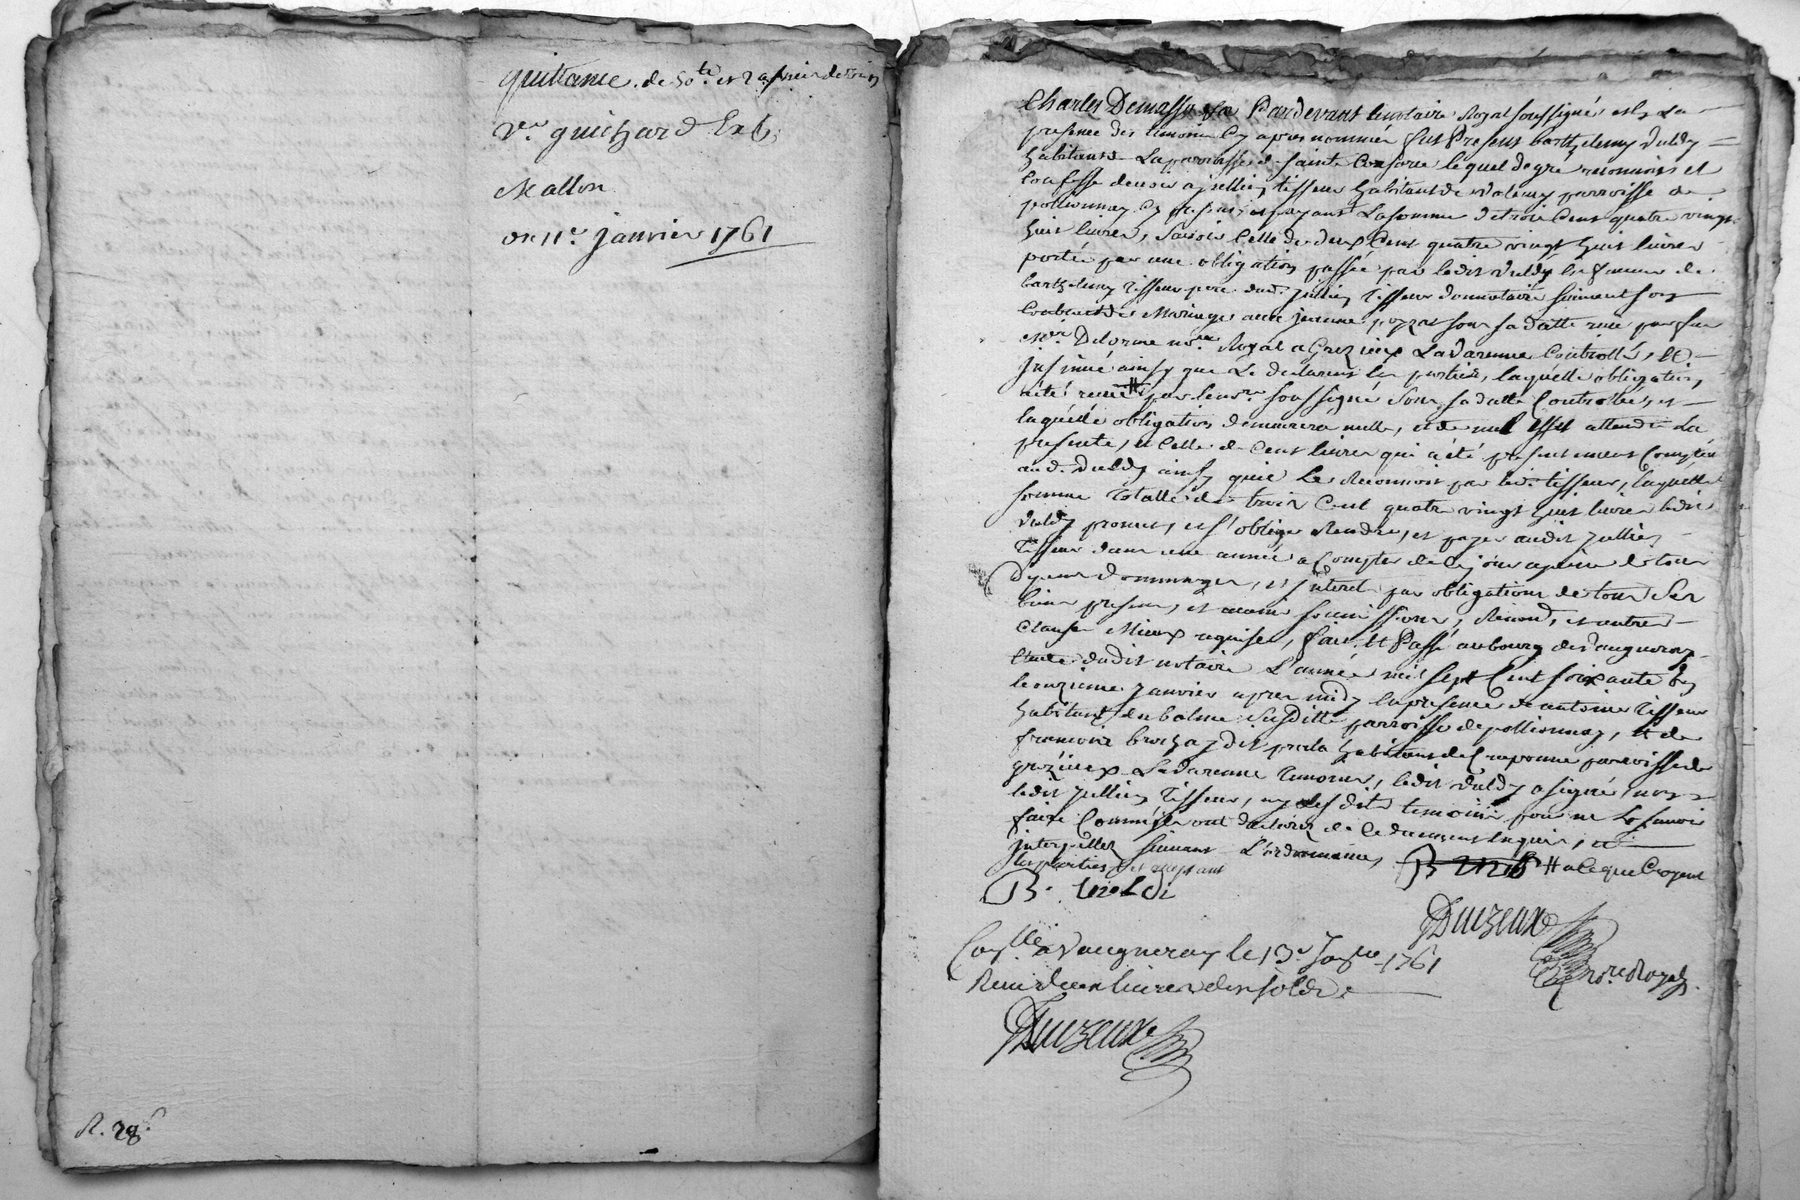 quittance. de 50 tt et
Ve. guichard
Mallon
du 11e. janvier 1761
R. 28 s
Charles Par devant le notaire Royal soussigné et en La
presence des temoins cy apres nommés fut Present barthelemy
habitant La parroisse de sainte Consorce lequel de gré reconnoit et
Confesse devoir a jullien tisseur habitant de parroisse de
pollionnay cy present, et La somme de trois Cent quatre vingt
huit livres, Scavoir Celle de deux Cent quatre vingt huit livres
portée par une obligation passée par ledit au proffit de
barthelemy tisseur pere dud. jullien tisseur donnataire suivant son
Contract de Mariage avec jeanne sous sa datte reçu par feu
Me. Delorme nore. Royal a Grezieux La Varenne Controllé, et
Insinué ainsy que Le declarent les parties, laquelle obligation
a été reçue # par le nore. soussigné sous sa datte Controllée, et
laquelle obligation demeurera nulle, et de nul effet attendu La
presente, et Celle de Cent livres qui a été presentement Comptée
aud. ainsy qu'il Le Reconnoit par led. tisseur, laquelle
somme Totalle de trois Cent quatre vingt huit livres ledit
promet, et s'oblige Rendre, et payer audit jullien
Tisseur dans une année a Compter de Ce jour a peine de tous
Depens dommages, et Interets par obligations de tous Ses
biens presents, et avenir soumissions, Renond, et autres
Clauses Mieux requises, fait Et Passé au bourg de vaugneray
Etude dudit notaire L'année mil sept Cent soixante un
le onzieme Janvier apres midy en presence de antoine Tisseur
habitant du balme Susditte parroisse de pollionnay, et de
francois habitant de Craponne parroisse de
grezieux La Varenne Temoins, ledit a signé, non
ledit jullien Tisseur, ny lesdits temoins pour ne Le savoir
faire Comme ils ont declaré de Ce duement Enquis, et
Interpellés Suivant L'ordonnance, # a Ce que Croyent
les parties
B.
Duizeux
nore. Royal
Conlle. a Vaugneray le 13e Janver 1761
Reçu
Duizeux